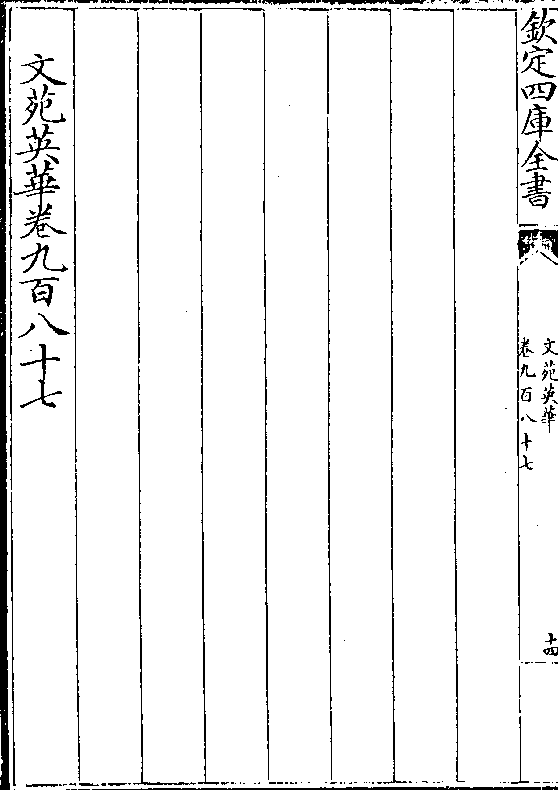 欽定四庫全書
文苑英華
卷九百八十七
十四
文苑英華卷九百八十七